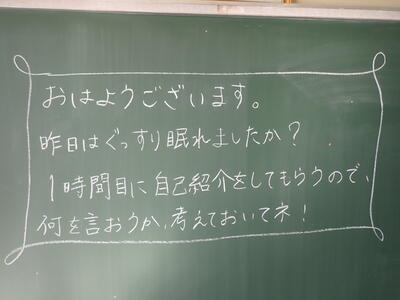 おはようございます。
昨日はぐっすり眠れましたか？
1時間目に自己紹介をしてもらうので、
何を言おうか、考えておいてネ！